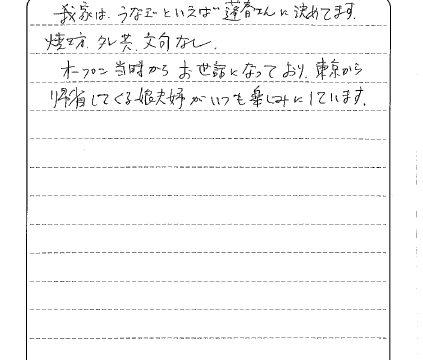 我家は、うなぎといえば蓮春さんに決めてます。
焼方、タレ共、文句なし。
オープン当時からお世話になっており、東京から
帰省してくる娘夫婦がいつも楽しみにしています。